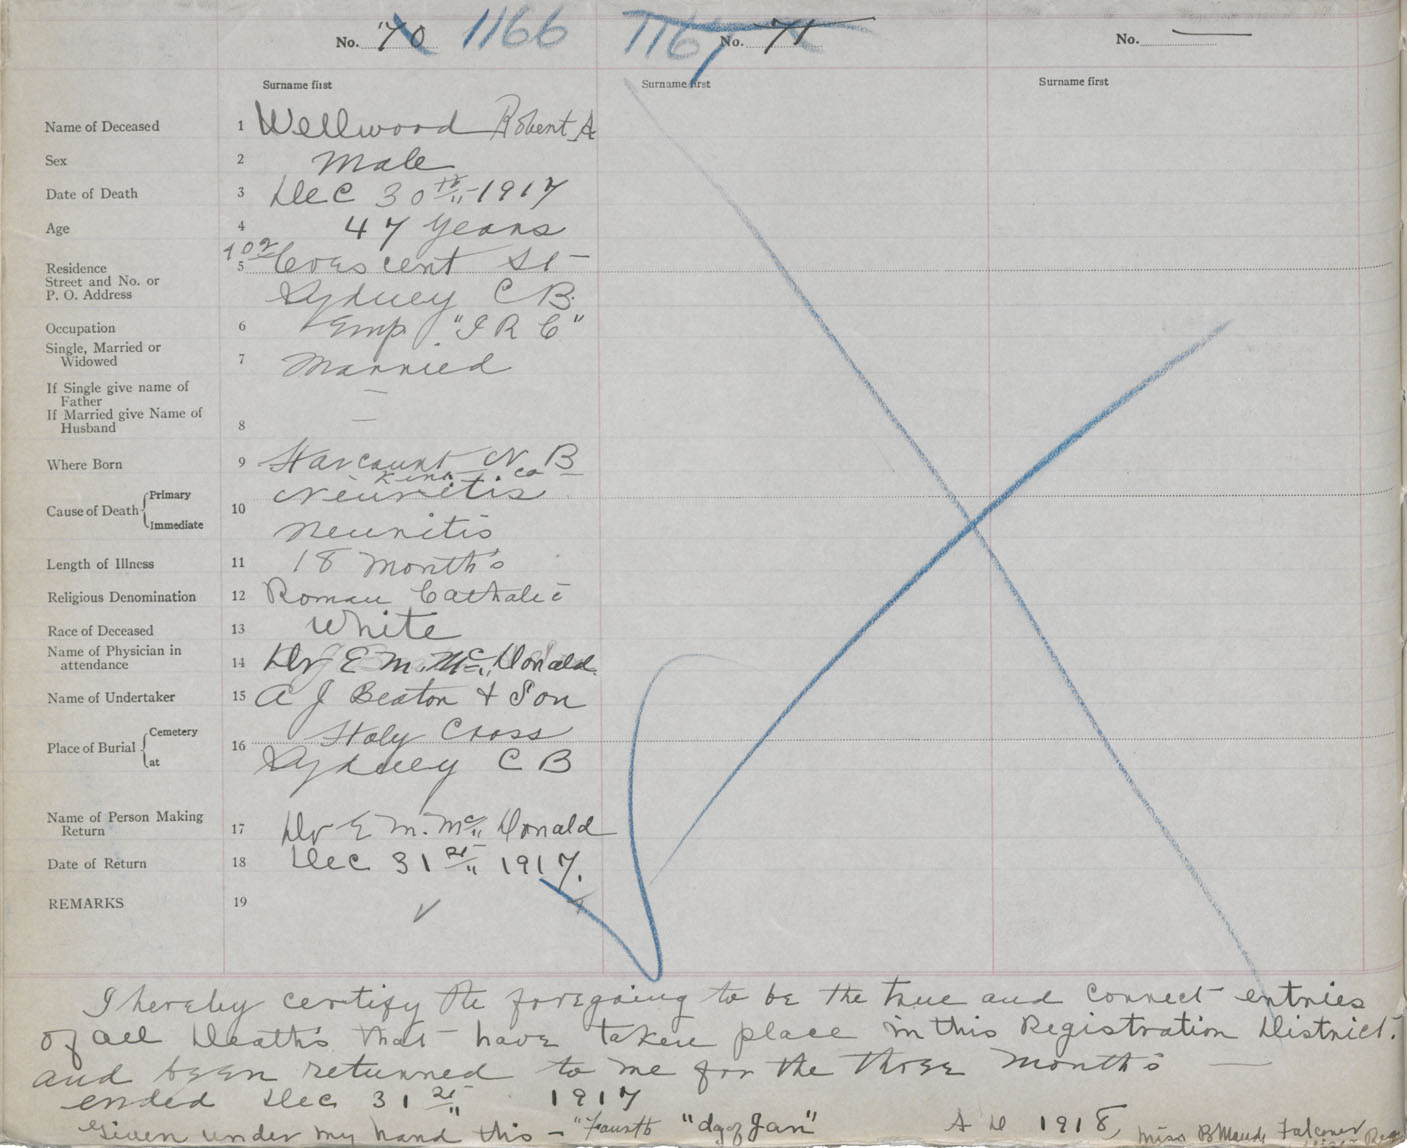 No. 70 1166 1167 No. 71 No.
Surname first Surname first Surname first
Name of Deceased 1 Wellwood Robert A
Sex 2 Male
Date of Death 3 Dec 30th 1917
Age 4 47 years
Residence Street and No. or P. O. Address 5 102 Crescent St
Sydney C B.
Occupation 6 Emp. "I R C"
Single, Married or Widowed 7 Married
If Single give name of Father —
If Married give Name of Husband 8 —
Where Born 9 Harcourt N B
Kent Co
Cause of Death Primary 10 Neuritis
Immediate Neuritis
Length of Illness 11 18 Month's
Religious Denomination 12 Roman Catholic
Race of Deceased 13 White
Name of Physician in attendance 14 Dr E M. Mc Donald
Name of Undertaker 15 A J Beaton & Son
Place of Burial Cemetery 16 Holy Cross
at Sydney C B
Name of Person Making Return 17 Dr E M. Mc Donald
Date of Return 18 Dec 31st 1917.
REMARKS 19
I hereby certify the foregoing to be the true and correct entries
of all Death's that have taken place in this Registration District.
and been returned to me for the three Month's —
ended Dec 31st 1917
Given under my hand this — "Fourth "dy of Jan" A D 1918, Miss B Maude Falconer